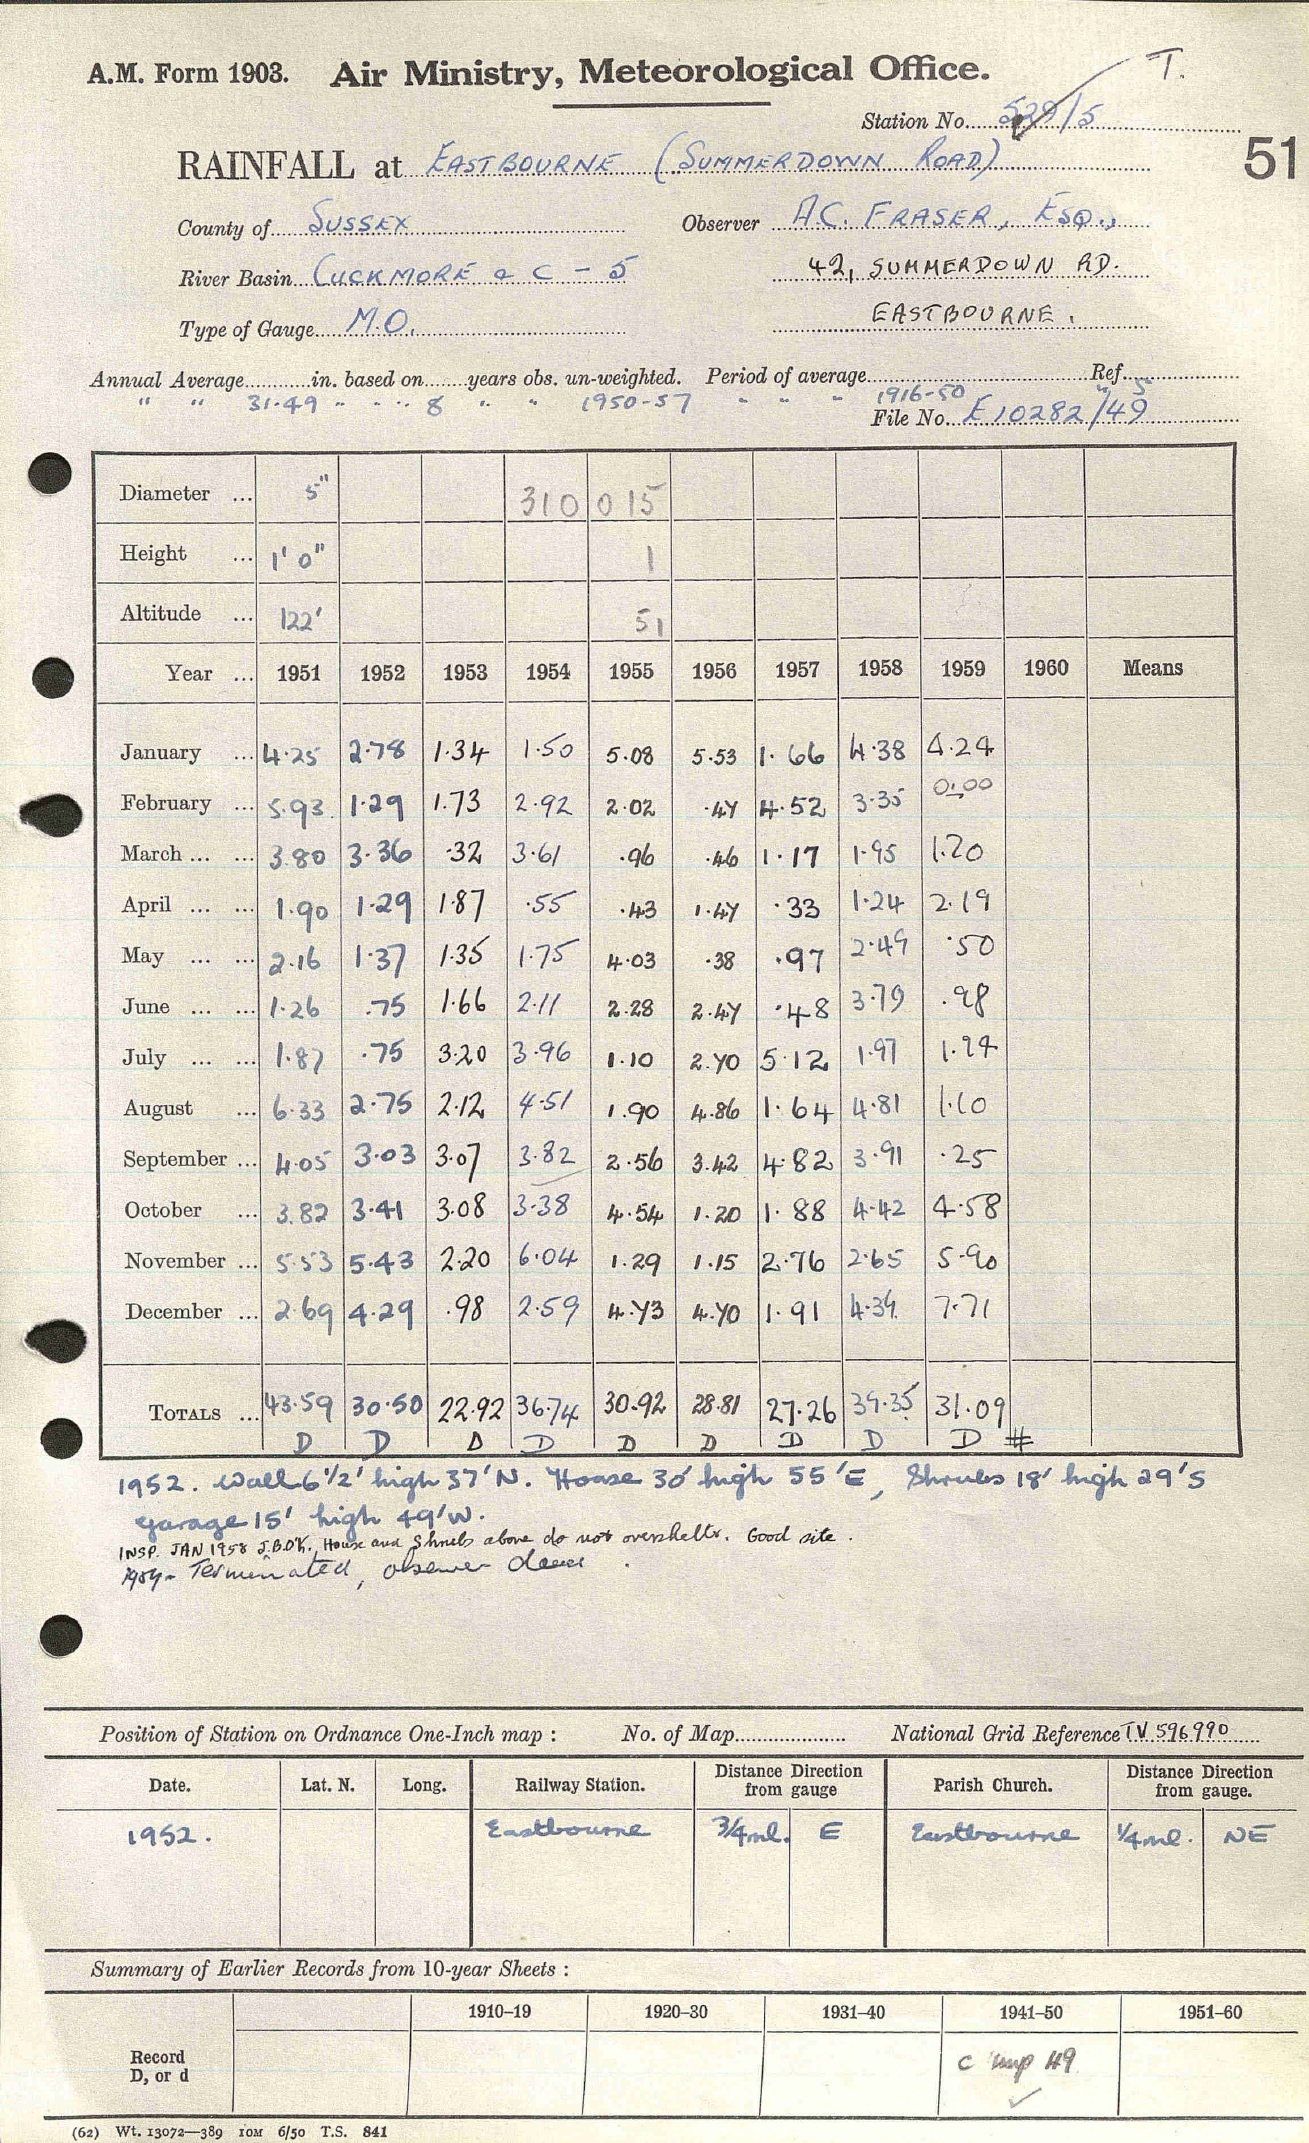 A.M. Form 1903. Air Ministry, Meteorological Office. T.
Station No. 529/5
RAINFALL at EASTBOURNE (SUMMERDOWN ROAD) 51
County of SUSSEX Observer A.C. FRASER, ESQ.,
River Basin CUCKMORE & C - 5 42, SUMMERDOWN RD.
Type of Gauge M.O. EASTBOURNE.
Annual Average in. based on years obs. un-weighted. Period of average Ref.
" " 31.49 " " " 8 " " 1950-57 " " " 1916-50 " 5
File No. E10282/49
Diameter ... 5" 310 015
Height ... 1' 0" 1
Altitude ... 122' 51
Year ... 1951 1952 1953 1954 1955 1956 1957 1958 1959 1960 Means
January ... 4.25 2.78 1.34 1.50 5.08 5.53 1.66 4.38 4.24
February ... 5.93 1.29 1.73 2.92 2.02 .47 4.52 3.35 0.00
March ... ... 3.80 3.36 .32 3.61 .96 .46 1.17 1.95 1.20
April ... ... 1.90 1.29 1.87 .55 .43 1.47 .33 1.24 2.19
May ... ... 2.16 1.37 1.35 1.75 4.03 .38 .97 2.49 .50
June ... ... 1.26 .75 1.66 2.11 2.28 2.47 .48 3.79 .98
July ... ... 1.87 .75 3.20 3.96 1.10 2.70 5.12 1.97 1.94
August ... 6.33 2.75 2.12 4.51 1.90 4.86 1.64 4.81 1.60
September ... 4.05 3.03 3.07 3.82 2.56 3.42 4.82 3.91 .25
October ... 3.82 3.41 3.08 3.38 4.54 1.20 1.88 4.42 4.58
November ... 5.53 5.43 2.20 6.04 1.29 1.15 2.76 2.65 5.90
December ... 2.69 4.29 .98 2.59 4.73 4.70 1.91 4.39 7.71
TOTALS ... 43.59 30.50 22.92 36.74 30.92 28.81 27.26 39.35 31.09
D D D D D D D D D #
1952. Wall 6 1/2' high 37' N. House 30' high 55' E, Shrubs 18' high 29' S
garage 15' high 49' W.
INSP. JAN 1958 J.B.O'K. House and Shrubs above do not overshelter. Good site.
1959 - Terminated, observer
Position of Station on Ordnance One-Inch map : No. of Map National Grid Reference TV 596990
Date. Lat. N. Long. Railway Station. Distance from gauge Direction Parish Church. Distance from gauge. Direction
1952. Eastbourne 3/4 ml. E Eastbourne 1/4 ml. NE
Summary of Earlier Records from 10-year Sheets :
1910–19 1920–30 1931–40 1941–50 1951–60
Record D, or d C Imp 49
(62) Wt. 13072—389 10M 6/50 T.S. 841